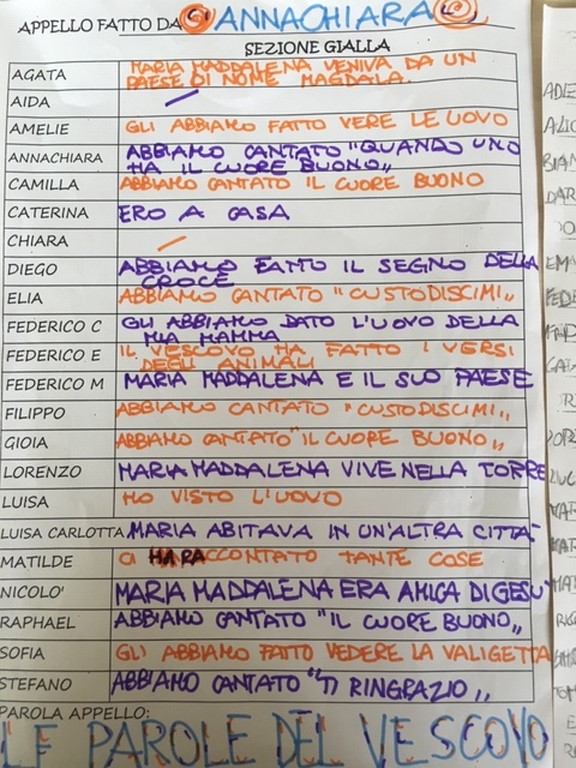 APPELLO FATTO DA ANNACHIARA
SEZIONE GIALLA
AGATA MARIA MADDALENA VENIVA DA UN
PAESE DI NOME MAGDALA.
AIDA
AMELIE GLI ABBIAMO FATTO VERE LE UOVO
ANNACHIARA ABBIAMO CANTATO "QUANDO UNO
HA IL CUORE BUONO,,
CAMILLA ABBIAMO CANTATO IL CUORE BUONO
CATERINA ERO A CASA
CHIARA
DIEGO ABBIAMO FATTO IL SEGNO DELLA
CROCE
ELIA ABBIAMO CANTATO "CUSTODISCIMI,,
FEDERICO C GLI ABBIAMO DATO L'UOVO DELLA
MIA MAMMA
FEDERICO E IL VESCOVO HA FATTO I VERSI
DEGLI ANIMALI
FEDERICO M MARIA MADDALENA E IL SUO PAESE
FILIPPO ABBIAMO CANTATO "CUSTODISCIMI,,
GIOIA ABBIAMO CANTATO "IL CUORE BUONO,,
LORENZO MARIA MADDALENA VIVE NELLA TORRE
LUISA HO VISTO L'UOVO
LUISA CARLOTTA MARIA ABITAVA IN UN'ALTRA CITTA'
MATILDE CI HA RACCONTATO TANTE COSE
NICOLO' MARIA MADDALENA ERA AMICA DI GESU'
RAPHAEL ABBIAMO CANTATO "IL CUORE BUONO,,
SOFIA GLI ABBIAMO FATTO VEDERE LA VALIGETTA
STEFANO ABBIAMO CANTATO "TI RINGRAZIO,,
PAROLA APPELLO:
LE PAROLE DEL VESCOVO